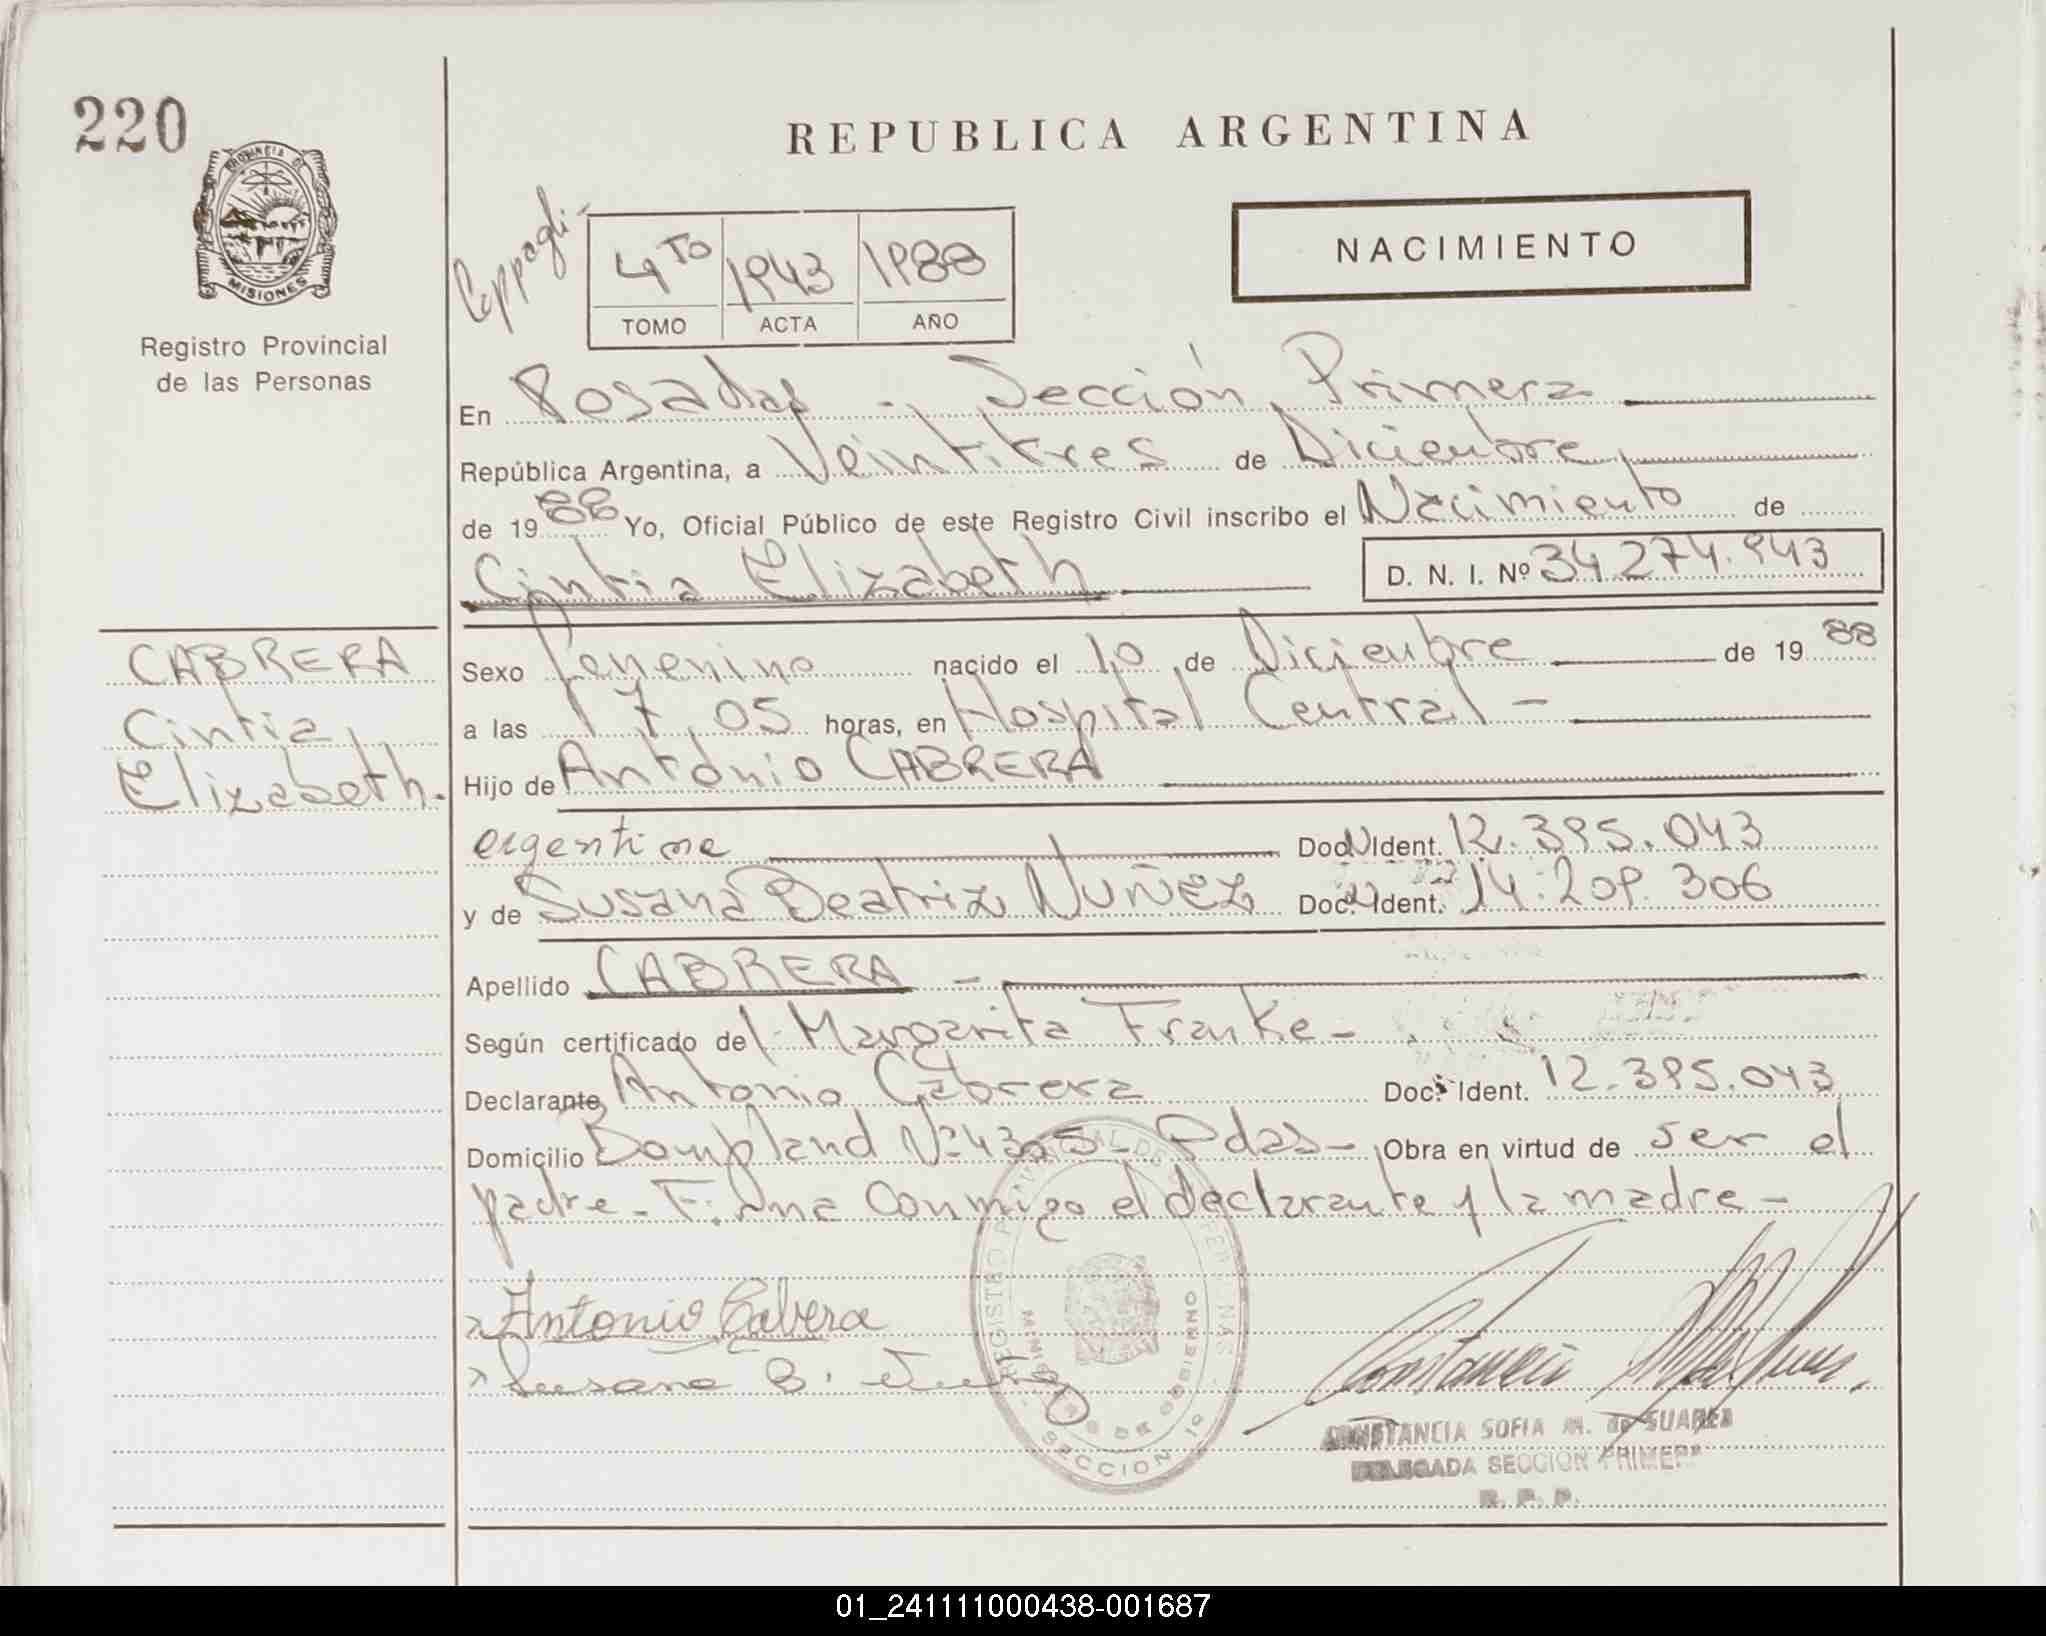 220
REPUBLICA ARGENTINA
PROVINCIA DE
MISIONES
Registro Provincial
de las Personas
4TO 1943 1988
TOMO ACTA AÑO
NACIMIENTO
En Posadas - Sección Primera
República Argentina, a Veintitres de Diciembre
de 1988 Yo, Oficial Público de este Registro Civil inscribo el Nacimiento de
Cintia Elizabeth D. N. I. Nº 34.274.943
CABRERA
Cintia
Elizabeth.
Sexo femenino nacido el 10 de Diciembre de 19 88
a las 17,05 horas, en Hospital Central -
Hijo de Antonio CABRERA
argentina Doc. Ident. 12.395.043
y de Susana Beatriz NUÑEZ Doc. Ident. 14.209.306
Apellido CABRERA -
Según certificado de Margarita Franke -
Declarante Antonio Cabrera Doc. Ident. 12.395.043
Domicilio Bompland Nº 4305 - Pdas - Obra en virtud de ser el
padre - Firma conmigo el declarante y la madre -
Antonio Cabrera
Susana B. Nuñez
REGISTRO PROVINCIAL DE LAS PERSONAS
MINISTERIO DE GOBIERNO
SECCION 1º
CONSTANCIA SOFIA M. de SUAREZ
DELEGADA SECCION PRIMERA
R. P. P.
01_241111000438-001687